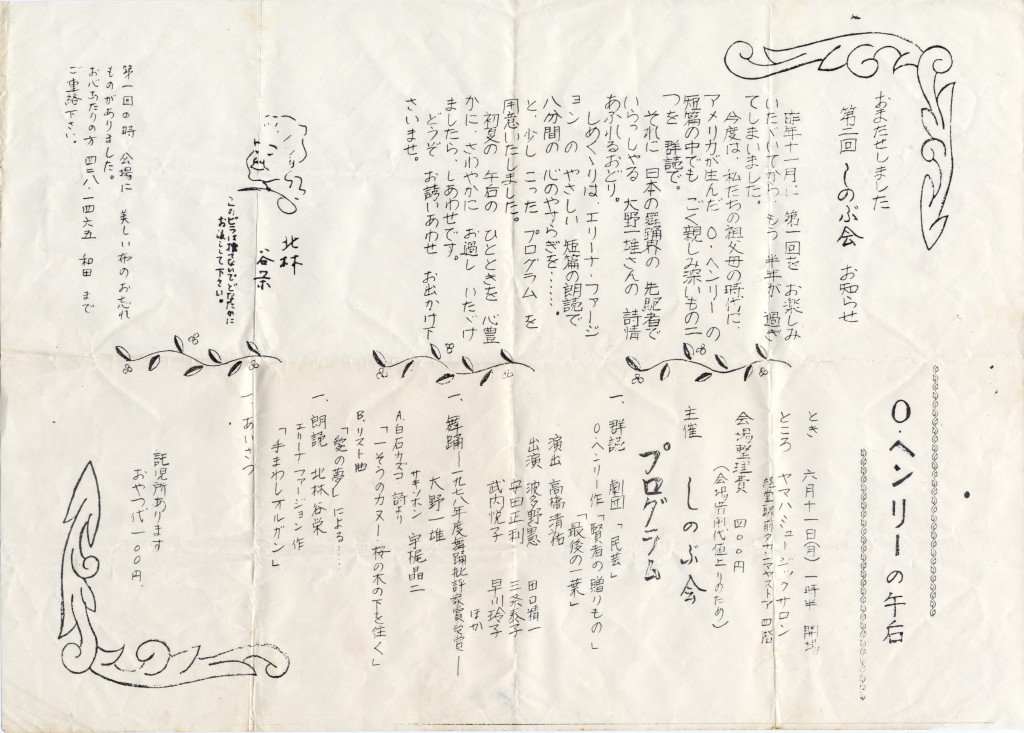 おまたせしました
第二回 しのぶ会 お知らせ
昨年十一月に 第一回を お楽しみ
いただいてから、もう 半年が 過ぎ
てしまいました。
今度は、私たちの祖父母の時代に、
アメリカが生んだ O・ヘンリー の
短篇の中でも ごく親しみ深いもの二
つを 群読で。
それに 日本の舞踊界の 先駆者で
いらっしゃる 大野一雄さんの 詩情
あふれるおどり。
しめくゝりは、エリーナ・ファージ
ョン の やさしい 短篇の朗読で
八分間の 心のやすらぎを……。
と、少し こった プログラム を
用意いたしました。
初夏の 午后の ひとときを 心豊
かに、さわやかに お過し いたゞけ
ましたら、しあわせです。
どうぞ お誘いあわせ お出かけ下
さいませ。
北林
谷栄
このビラは捨てないで、どなたかに
お渡しして下さい。
第一回の時 会場に 美しい布のお忘れ
ものがありました。
お心あたりの方 四二八・一四六五 和田 まで
ご連絡下さい。
O・ヘンリーの午后
とき 六月十一日(月) 一時半 開場
ところ ヤマハミュージックサロン
会場整理費 四〇〇円
(会場費用代値上りのため)
主催 しのぶ会
プログラム
一、群読 劇団「民芸」
O・ヘンリー作「賢者の贈りもの」
「最後の一葉」
演出 高橋清祐
出演 波多野憲 田口精一
安田正利 三条泰子
武内悦子 早川玲子
ほか
一、舞踊―一九七八年度舞踊批評家賞受賞―
大野一雄
サキソホン 宇梶晶二
A.白石カズコ 詩より
「一そうのカヌー・桜の木の下を往く」
B.リスト曲
「愛の夢」による…
一、朗読 北林谷栄
エリーナ・ファージョン作
「手まわしオルガン」
一 あいさつ
託児所あります
おやつ代一〇〇円。